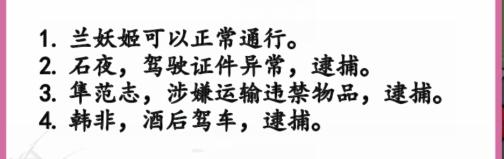 1. 兰妖姬可以正常通行。
2. 石夜，驾驶证件异常，逮捕。
3. 隼范志，涉嫌运输违禁物品，逮捕。
4. 韩非，酒后驾车，逮捕。